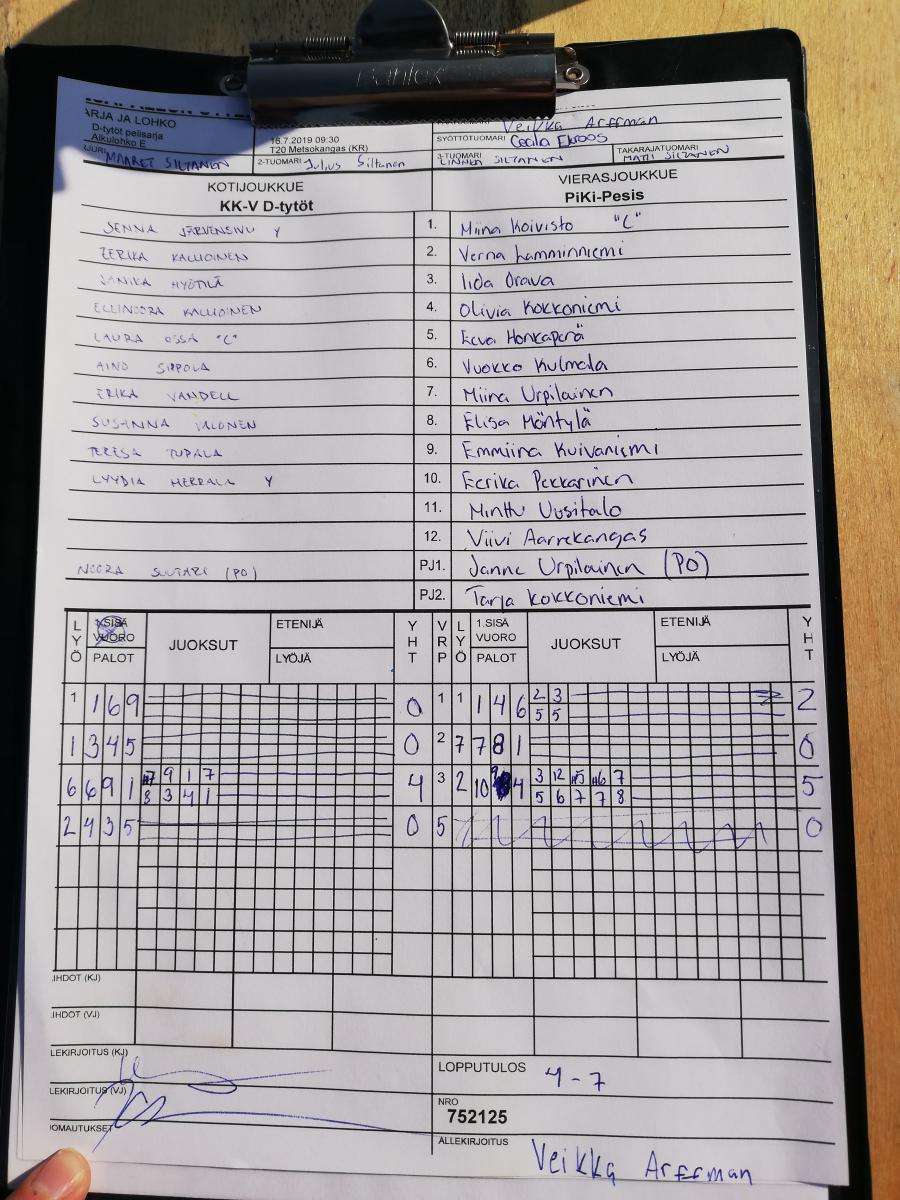 Bantex
ARJA JA LOHKO
D-tytöt pelisarja
Alkulohko E
16.7.2019 09:30
T20 Metsokangas (KR)
Veikka Arffman
SYÖTTÖTUOMARI Cecilia Ekroos
MAARET SILTANEN
2-TUOMARI Julius Siltanen
3-TUOMARI LINNEA SILTANEN
TAKARAJATUOMARI MATTI SILTANEN
KOTIJOUKKUE
KK-V D-tytöt
VIERASJOUKKUE
PiKi-Pesis
JENNA JÄRVENSIVU Y 1. Miina Koivisto "C"
EERIKA KALLIOINEN 2. Verna Lamminniemi
JANIKA HYÖTILÄ 3. Iida Orava
ELLINOORA KALLIOINEN 4. Olivia Kokkoniemi
LAURA OSSA "C" 5. Eeva Honkaperä
AINO SIPPOLA 6. Vuokko Kulmala
ERIKA VANDELL 7. Miina Urpilainen
SUSANNA VALONEN 8. Elisa Mäntylä
TERESA TUPALA 9. Emmiina Kuivaniemi
LYYDIA HERRALA Y 10. Eerika Pekkarinen
11. Minttu Uusitalo
12. Viivi Aarrekangas
NOORA SUUTARI (PO) PJ1. Janne Urpilainen (PO)
PJ2. Tarja Kokkoniemi
LYÖ 1.SISÄ VUORO PALOT JUOKSUT ETENIJÄ LYÖJÄ YHT VRP LYÖ 1.SISÄ VUORO PALOT JUOKSUT ETENIJÄ LYÖJÄ YHT
1 1 6 9 0 1 1 1 4 6 2 3 2
5 5
1 3 4 5 0 2 7 7 8 1 0
6 6 9 1 7 9 1 7 4 3 2 10 9 4 3 12 5 6 7 5
3 3 4 1 5 6 7 7 8
2 4 3 5 0 5 0
IHDOT (KJ)
IHDOT (VJ)
LEKIRJOITUS (KJ)
LEKIRJOITUS (VJ)
OMAUTUKSET
LOPPUTULOS 4-7
NRO
752125
ALLEKIRJOITUS Veikka Arffman